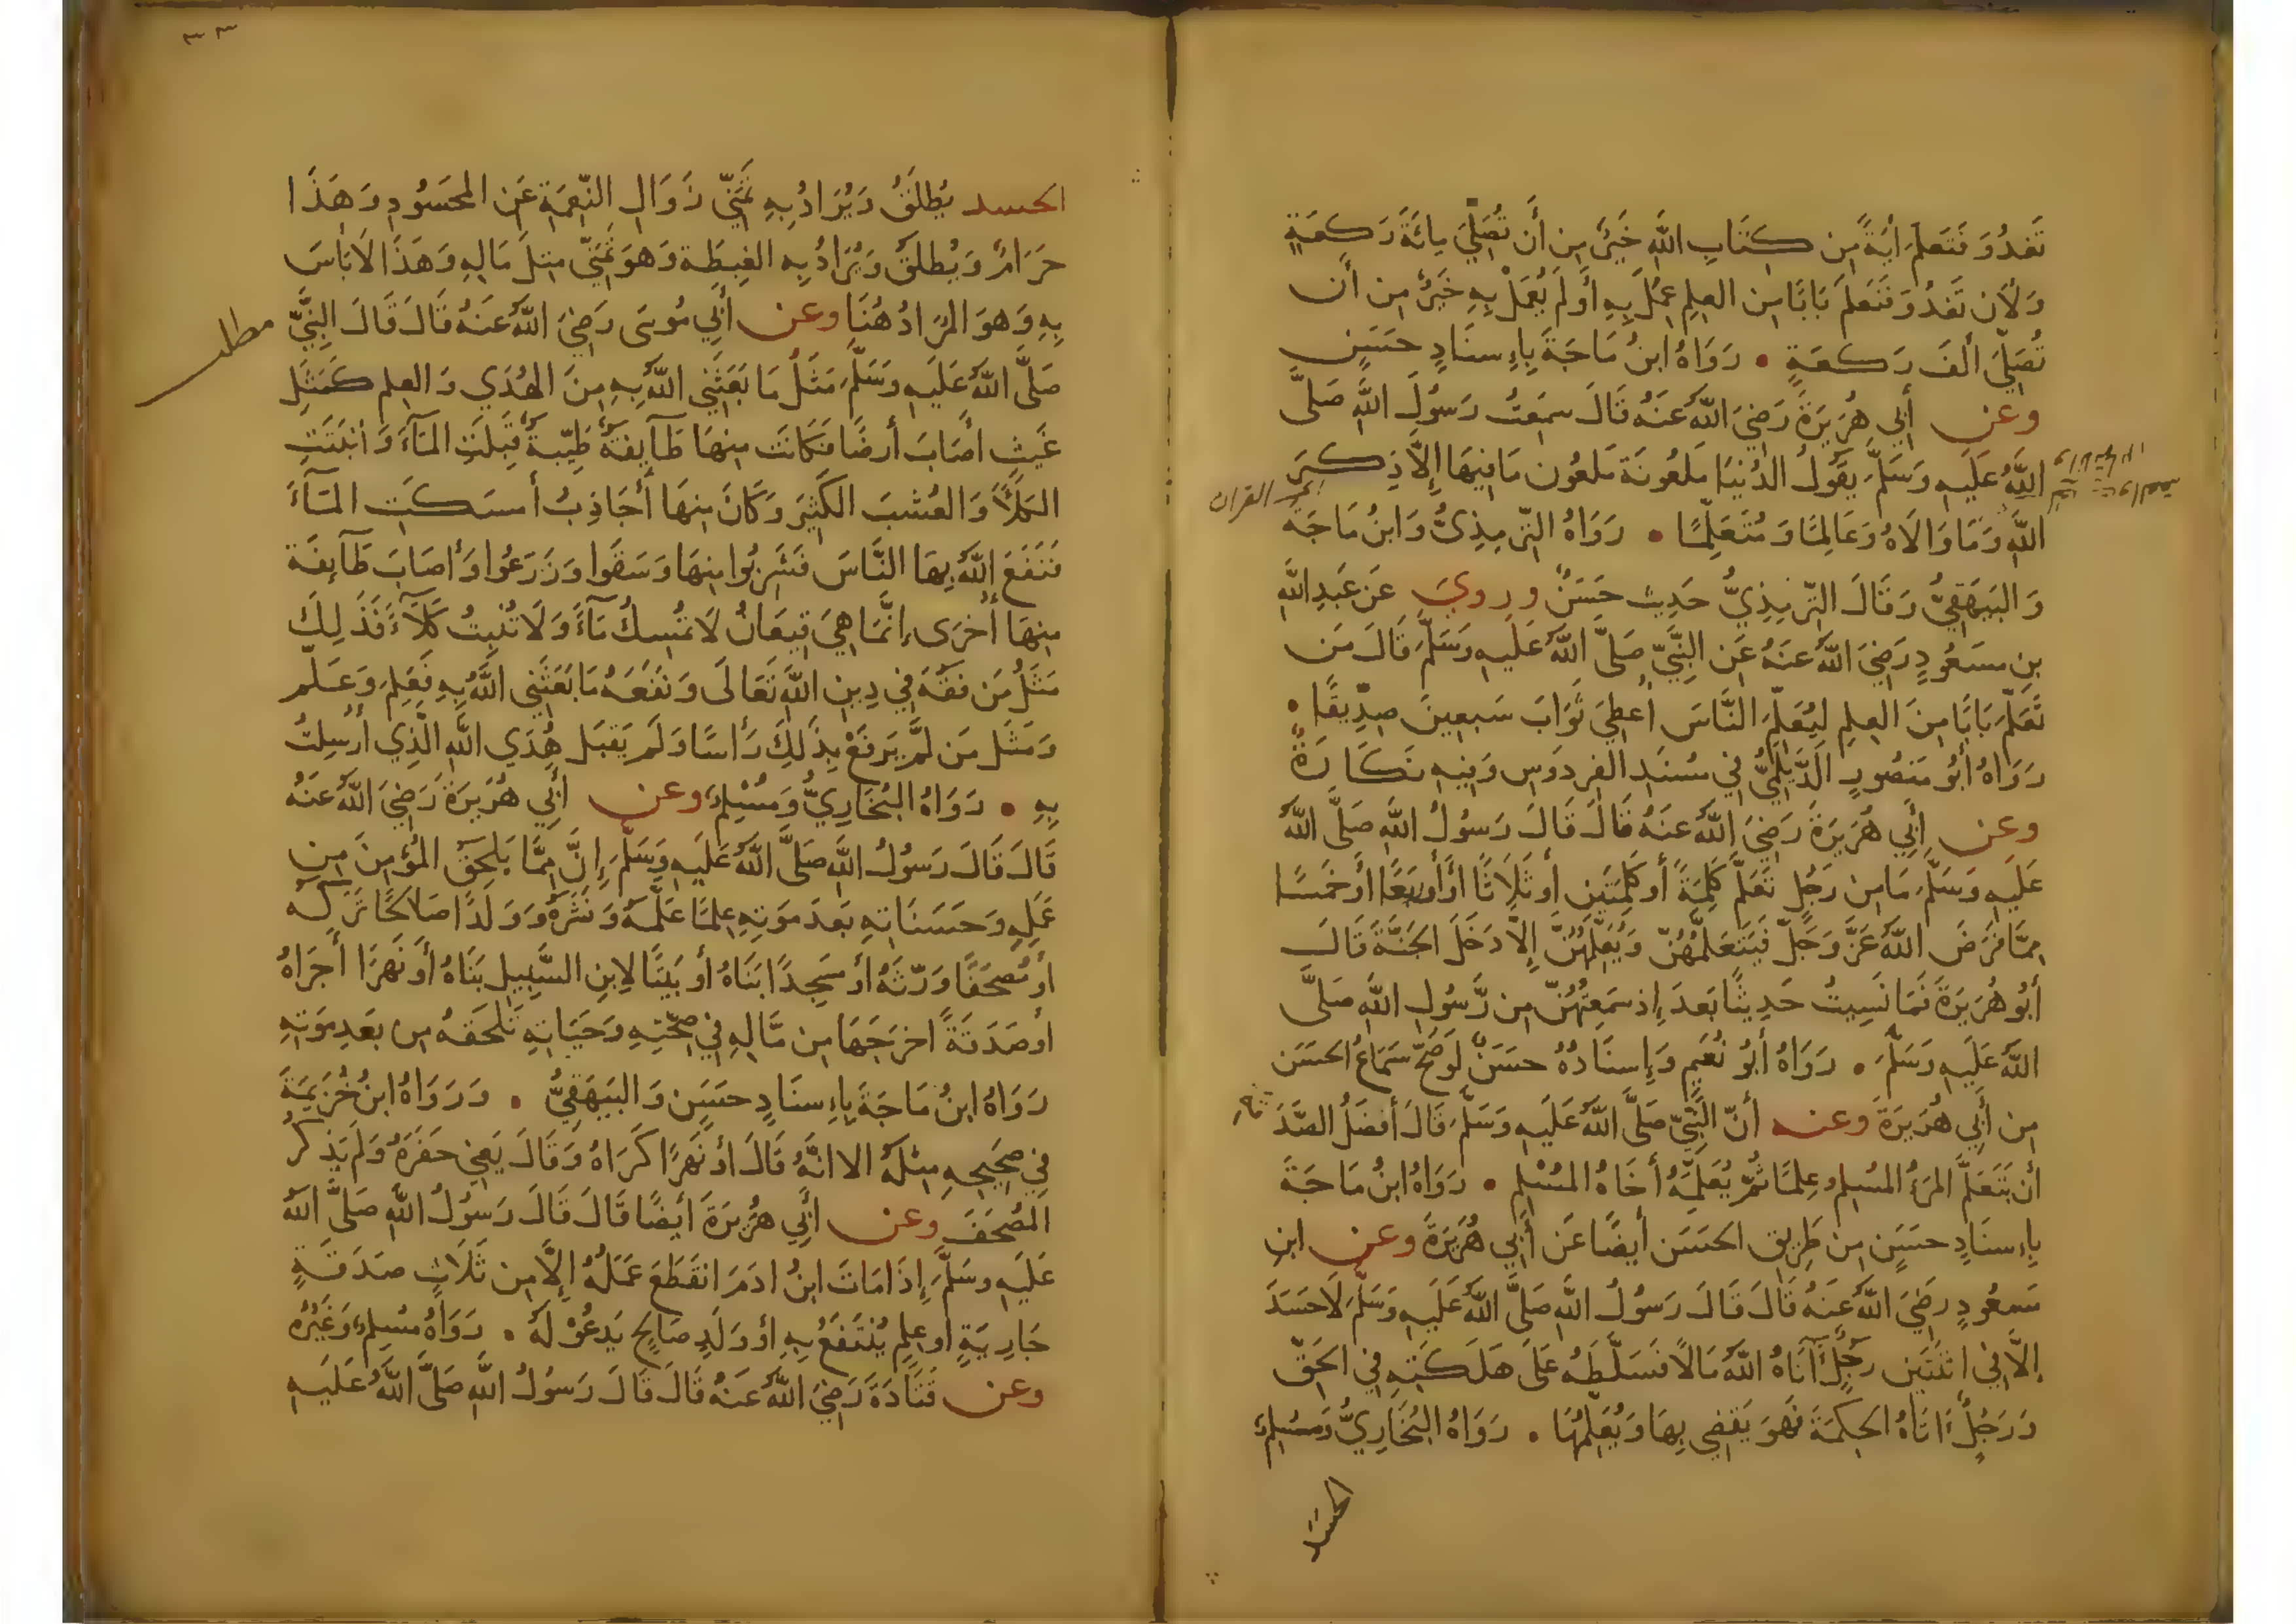 تَغدُوَ فَتَعَلَّمَ اٰيَةً مِن كِتَابِ اللَّهِ خَيْرٌ مِن أَن تُصَلِّيَ مِائَةَ رَكعَةٍ
وَلَأَن تَغدُوَ فَتَعَلَّمَ بَابًا مِن العِلمِ عُمِلَ بِهِ أَو لَم يُعمَلْ بِهِ خَيْرٌ مِن أَن
تُصَلِّيَ أَلفَ رَكعَةٍ • رَوَاهُ ابنُ مَاجَةَ بِإِسنَادٍ حَسَنٍ
وعن أَبِي هُرَيرَةَ رَضِيَ اللَّهُ عَنهُ قَالَ سَمِعتُ رَسُولَ اللَّهِ صَلَّى
اللَّهُ عَلَيهِ وَسَلَّمَ يَقُولُ الدُّنيَا مَلعُونَة مَلعُون مَا فِيهَا إِلَّا ذِكرَ
القران
اللَّهِ وَمَا وَالَاهُ وَعَالِمًا وَمُتَعَلِّمًا • رَوَاهُ التِّرمِذِيُّ وَابنُ مَاجَةَ
وَالبَيهَقِيُّ وَقَالَ التِّرمِذِيُّ حَدِيث حَسَنٌ ورويَ عَن عَبدِ اللَّهِ
بنِ مسعُودٍ رَضِيَ اللَّهُ عَنهُ عَنِ النَّبِيِّ صَلَّى اللَّهُ عَلَيهِ وَسَلَّمَ قَالَ مَن
تَعَلَّمَ بَابًا مِنَ العِلمِ لِيُعَلِّمَ النَّاسَ أُعطِيَ ثَوَابَ سَبعِينَ صِدِّيقًا •
رَوَاهُ أَبُو مَنصُورٍ الدَّيلَمِيُّ فِي مُسنَدِ الفِردَوسِ وَفِيهِ نَكَارَةٌ
وعن أَبِي هُرَيرَةَ رَضِيَ اللَّهُ عَنهُ قَالَ قَالَ رَسُولُ اللَّهِ صَلَّى اللَّهُ
عَلَيهِ وَسَلَّمَ مَا مِن رَجُلٍ تَعَلَّمَ كَلِمَةً أَو كَلِمَتَينِ أَو ثَلَاثًا أَو أَربَعًا أَو خَمسًا
مِمَّا فَرَضَ اللَّهُ عَزَّ وَجَلَّ فَيَتَعَلَّمُهُنَّ وَيُعَلِّمُهُنَّ إِلَّا دَخَلَ الجَنَّةَ قَالَ
أَبُو هُرَيرَةَ فَمَا نَسِيتُ حَدِيثًا بَعدَ إِذ سَمِعتُهُنَّ مِن رَّسُولِ اللَّهِ صَلَّى
اللَّهُ عَلَيهِ وَسَلَّمَ • رَوَاهُ أَبُو نُعَيمٍ وَإِسنَادُهُ حسَنٌ لَو صَحَّ سَمَاعُ الحَسَن
مِن أَبِي هُرَيرَةَ وعنه أَنَّ النَّبِيَّ صَلَّى اللَّهُ عَلَيهِ وَسَلَّمَ قَالَ أَفضَلُ الصَّدَ
أَن يَتَعَلَّمَ المَرءُ المُسلِم عِلمًا ثُمَّ يُعَلِّمَهُ أَخَاهُ المُسْلِم • رَوَاهُ ابنُ مَاجَةَ
بِإِسنَادٍ حسَنٍ مِن طَرِيق الحَسَن أَيضًا عَن أَبِي هُرَيرَةَ وعن ابنِ
مَسعُودٍ رَضِيَ اللَّهُ عَنهُ قَالَ قَالَ رَسُولُ اللَّهِ صَلَّى اللَّهُ عَلَيهِ وَسَلَّمَ لَا حَسَدَ
إِلَّا فِي اثنَتَينِ رَجُلٌ آتَاهُ اللَّهُ مَالًا فَسَلَّطَهُ عَلَى هَلَكَتِهِ فِي الحَقِّ
وَرَجُلٌ ءَاتَاهُ الحِكمَةَ فَهوَ يَقضِي بِهَا وَيُعَلِّمُهَا • رَوَاهُ البُخَارِيُّ وَمُسلِم
الحسَد
٣٣
الحسد يُطلَقُ وَيُرَادُ بِهِ تَمَنِّي زَوَالِ النِّعمَةِ عَنِ المَحسُودِ وَهَذَا
حَرَامٌ وَيُطلَقُ وَيُرَادُ بِهِ الغِبطَة وَهوَ تَمَنِّي مِثلَ مَالِهِ وَهَذَا لَا بَأسَ
بِهِ وَهوَ المُرَادُ هُنَا وعن أَبِي مُوسَى رَضِيَ اللَّهُ عَنهُ قَالَ قَالَ النَّبِيُّ
مطلب
صَلَّى اللَّهُ عَلَيهِ وَسَلَّمَ مَثَلُ مَا بَعَثَنِي اللَّهُ بِهِ مِنَ الهُدَي وَالعِلم كَمَثَلِ
غَيثٍ أَصَابَ أَرضًا فَكَانَت مِنهَا طَآيِفَةٌ طَيِّبةٌ قَبِلَتِ المَآءَ وَانبَتَتِ
الكَلَأَ وَالعُشبَ الكَثِيرَ وَكَانَ مِنهَا أَجَاذِبُ أَمسَكَتِ المَآءَ
فَنَفَعَ اللَّهُ بِهَا النَّاسَ فَشَرِبُوا مِنهَا وَسَقَوا وَزَرَعُوا وَأَصَابَ طَآيِفَة
مِنهَا أُخرَى إِنَّمَا هِيَ قِيعَانٌ لَا تُمسِكُ مَآءً وَلَا تُنبِتُ كَلَأً فَذَلِكَ
مَثَلُ مَن فَقُهَ فِي دِينِ اللَّهِ تَعَالَى وَنَفَعَهُ مَا بَعَثَنِي اللَّهُ بِهِ فَعَلِمَ وَعَلَّمَ
وَمَثَل مَن لَّم يَرفَعْ بِذَلِكَ رَأسًا وَلَم يَقبَل هُدَي اللَّهِ الَّذِي أُرسِلتُ
بِهِ • رَوَاهُ البُخَارِيُّ وَمُسْلِم وعن أَبِي هُرَيرَةَ رَضِيَ اللَّهُ عَنهُ
قَالَ قَالَ رَسُولُ اللَّهِ صَلَّى اللَّهُ عَلَيهِ وَسَلَّمَ إِنَّ مِمَّا يَلحَقُ المُؤمِنَ مِن
عَمَلِهِ وَحَسَنَاتِهِ بَعدَ مَوتِهِ عِلمًا عَلَّمَهُ وَنَشَرَهُ وَوَلَدًا صَالحًا تَرَكَه
أَو مُصحَفًا وَرَّثَهُ أَو مَسجِدًا بَنَاهُ أَو بَيتًا لِابنِ السَّبِيلِ بَنَاهُ أَو نَهرًا أَجرَاهُ
أَو صَدَقَةً اخرَجَهَا مِن مَّالِهِ فِي صِحَّتِهِ وَحَيَاتِهِ تَلحَقهُ من بَعدِ مَوتِهِ
رَوَاهُ ابنُ مَاجَةَ بِإِسنَادٍ حسَنٍ وَالبَيهَقِيُّ • وَرَوَاهُ ابنُ خُزَيمَةَ
فِي صَحِيحِهِ مِثلَهُ الا انَّهُ قَالَ أَو نَهرًا كَرَاهُ وَقَالَ يَعنِي حَفَرَهُ وَلَم يَذكُر
المُصحَفَ وعن أَبِي هُرَيرَةَ أَيضًا قَالَ قَالَ رَسُولُ اللَّهِ صَلَّى اللَّهُ
عَلَيهِ وسَلَّمَ إِذَا مَاتَ ابنُ ادَمَ انقَطَعَ عَمَلُهُ إِلَّا مِن ثَلَاثٍ صَدَقَةٍ
جَارِيَةٍ أَو عِلمٍ يُنتَفَعُ بِهِ أَو وَلَدٍ صَالِحٍ يَدعُوْ لَهُ • رَوَاهُ مُسلِم وَغَيرُهُ
وعن قَتَادَةَ رَضِيَ اللَّهُ عَنهُ قَالَ قَالَ رَسُولُ اللَّهِ صَلَّى اللَّهُ عَلَيهِ